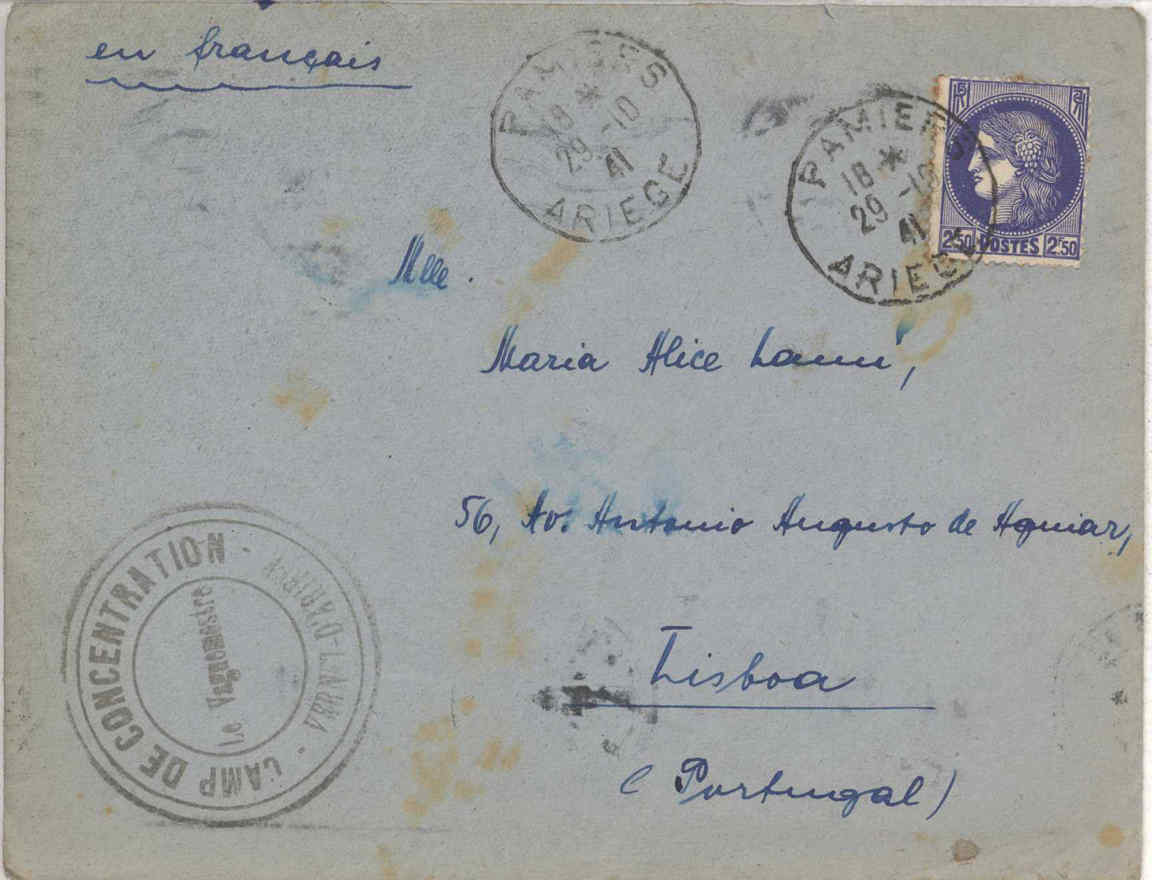 en français
PAMIERS
18 *
29 -10
41
ARIEGE
PAMIERS
18 *
29 -10
41
ARIEGE
2F50 POSTES 2F50
Mlle.
Maria Alice
56, Av. Antonio Augusto de Aguiar,
Lisboa
(Portugal)
CAMP DE CONCENTRATION
Le Vaguemestre